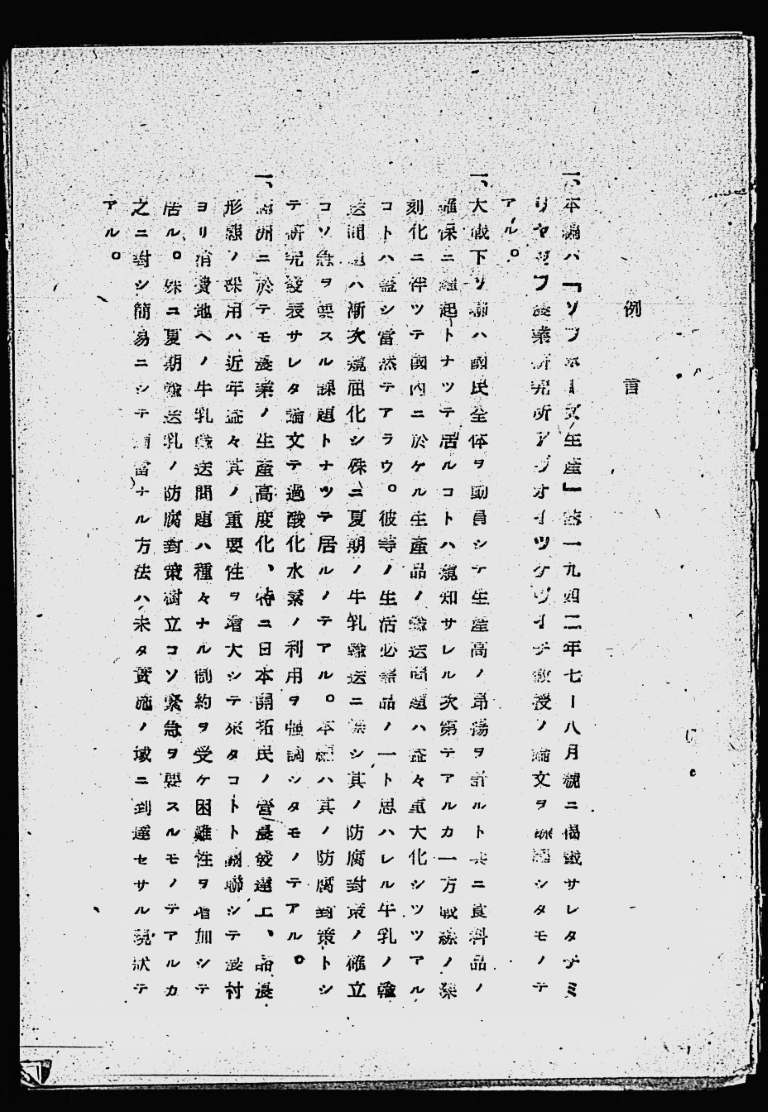 例言
一、本編ハ「ソフホーズ生産」誌一九四二年七ー八月號ニ掲載サレタチミ
リヤゼフ農業研究所アヴオイツケヴイチ教授ノ論文ヲ飜譯シタモノデ
アル。
一、大戰下ソ聯ハ國民全体ヲ動員シテ生産高ノ昂揚ヲ計ルト共ニ食料品ノ
確保ニ起トナツテ居ルコトハ窺知サレル次第テアルカ一方戰線ノ深
刻化ニ伴ツテ國内ニ於ケル生産品ノ輸送問題ハ益々重大化シツツアル
コトハ蓋シ當然テアラウ。彼等ノ生活必需品ノ一ト思ハレル牛乳ノ輸
送問題ハ漸次窮屈化シ殊ニ夏期ノ牛乳輸送ニ際シ其ノ防腐對策ノ確立
コソ急ヲ要スル課題トナツテ居ルノテアル。本編ハ其ノ防腐對策トシ
テ研究發表サレタ論文テ過酸化水素ノ利用ヲ強調シタモノテアル。
一、滿洲ニ於テモ農業ノ生産高度化、特ニ日本開拓民ノ營農發達上、酪農
形態ノ採用ハ近年益々其ノ重要性ヲ増大シテ來タコトト關聯シテ農村
ヨリ消費地ヘノ牛乳輸送問題ハ種々ナル制約ヲ受ケ困難性ヲ増加シテ
居ル。殊ニ夏期輸送乳ノ防腐對策樹立コソ緊急ヲ要スルモノテアルカ
之ニ對シ簡易ニシテ適當ナル方法ハ未タ實施ノ域ニ到達セサル現狀テ
アル。